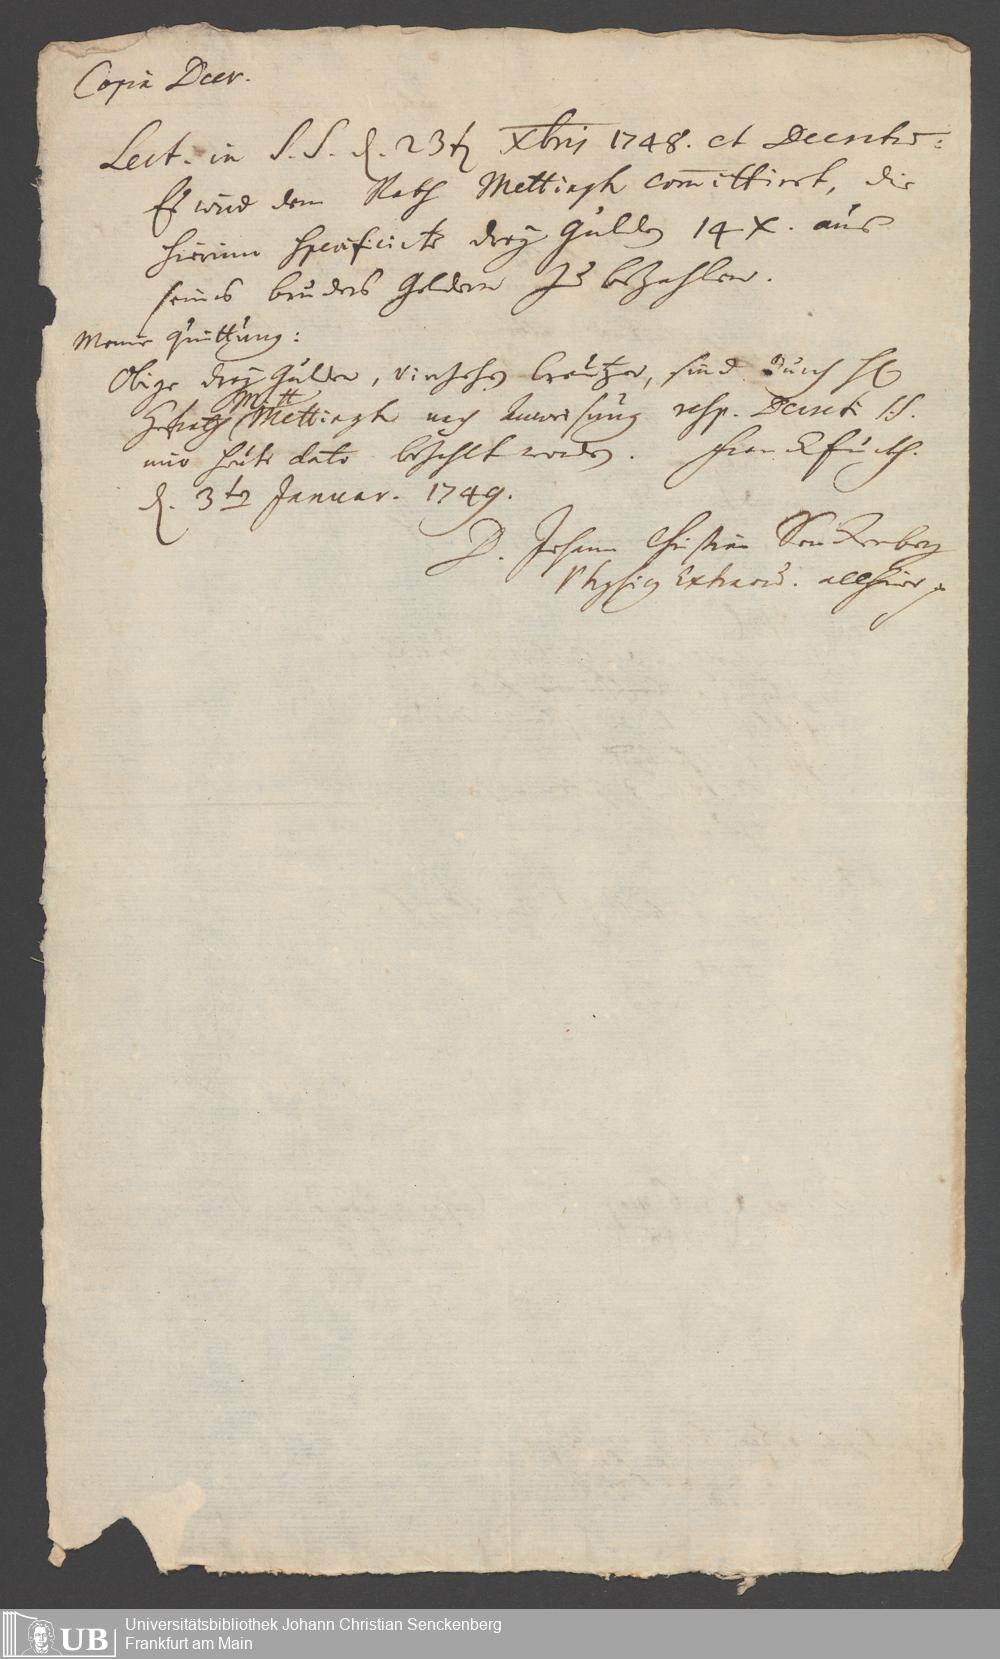 Copia Decr.
Lect. in S. S. d. 23t Xbris 1748. et Decretur:
Es wird dem Rath Mettingh com̄ittirt, die
hierinn specificirte drey Gulden 14 X. aus
seines bruders Geldern zu bezahlen.
Meine Quittung:
Obige drey Gulden, vierzehn kreutzer, sind durch H
Mettingh nach Anweisung resp. Decreti S.S.
mir heute dato bezahlt worden. Franckfurth.
d. 3ten Januar. 1749.
D. Johann Christian Senckenberg
Physicus Extraord. allhier
UB
Universitätsbibliothek Johann Christian Senckenberg
Frankfurt am Main